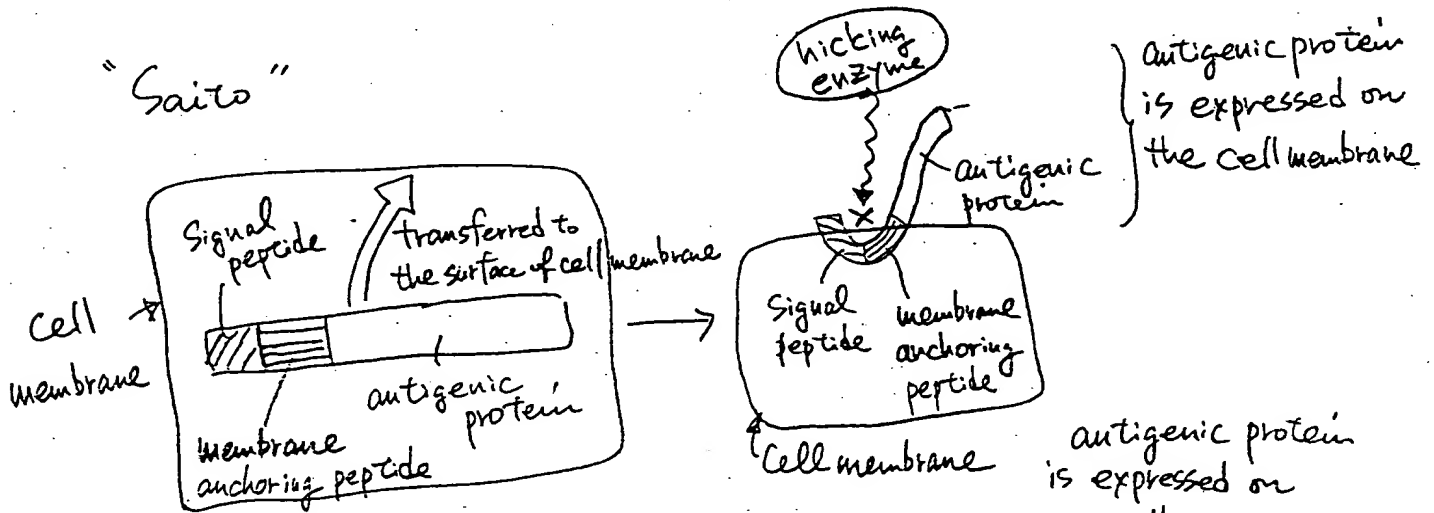 "Saito"
Signal
peptide
transferred to
the surface of cell membrane
cell
membrane
antigenic
protein
membrane
anchoring peptide
nicking
enzyme
antigenic
protein
antigenic protein
is expressed on
the cell membrane
Signal
peptide
membrane
anchoring
peptide
Cell membrane
antigenic protein
is expressed on